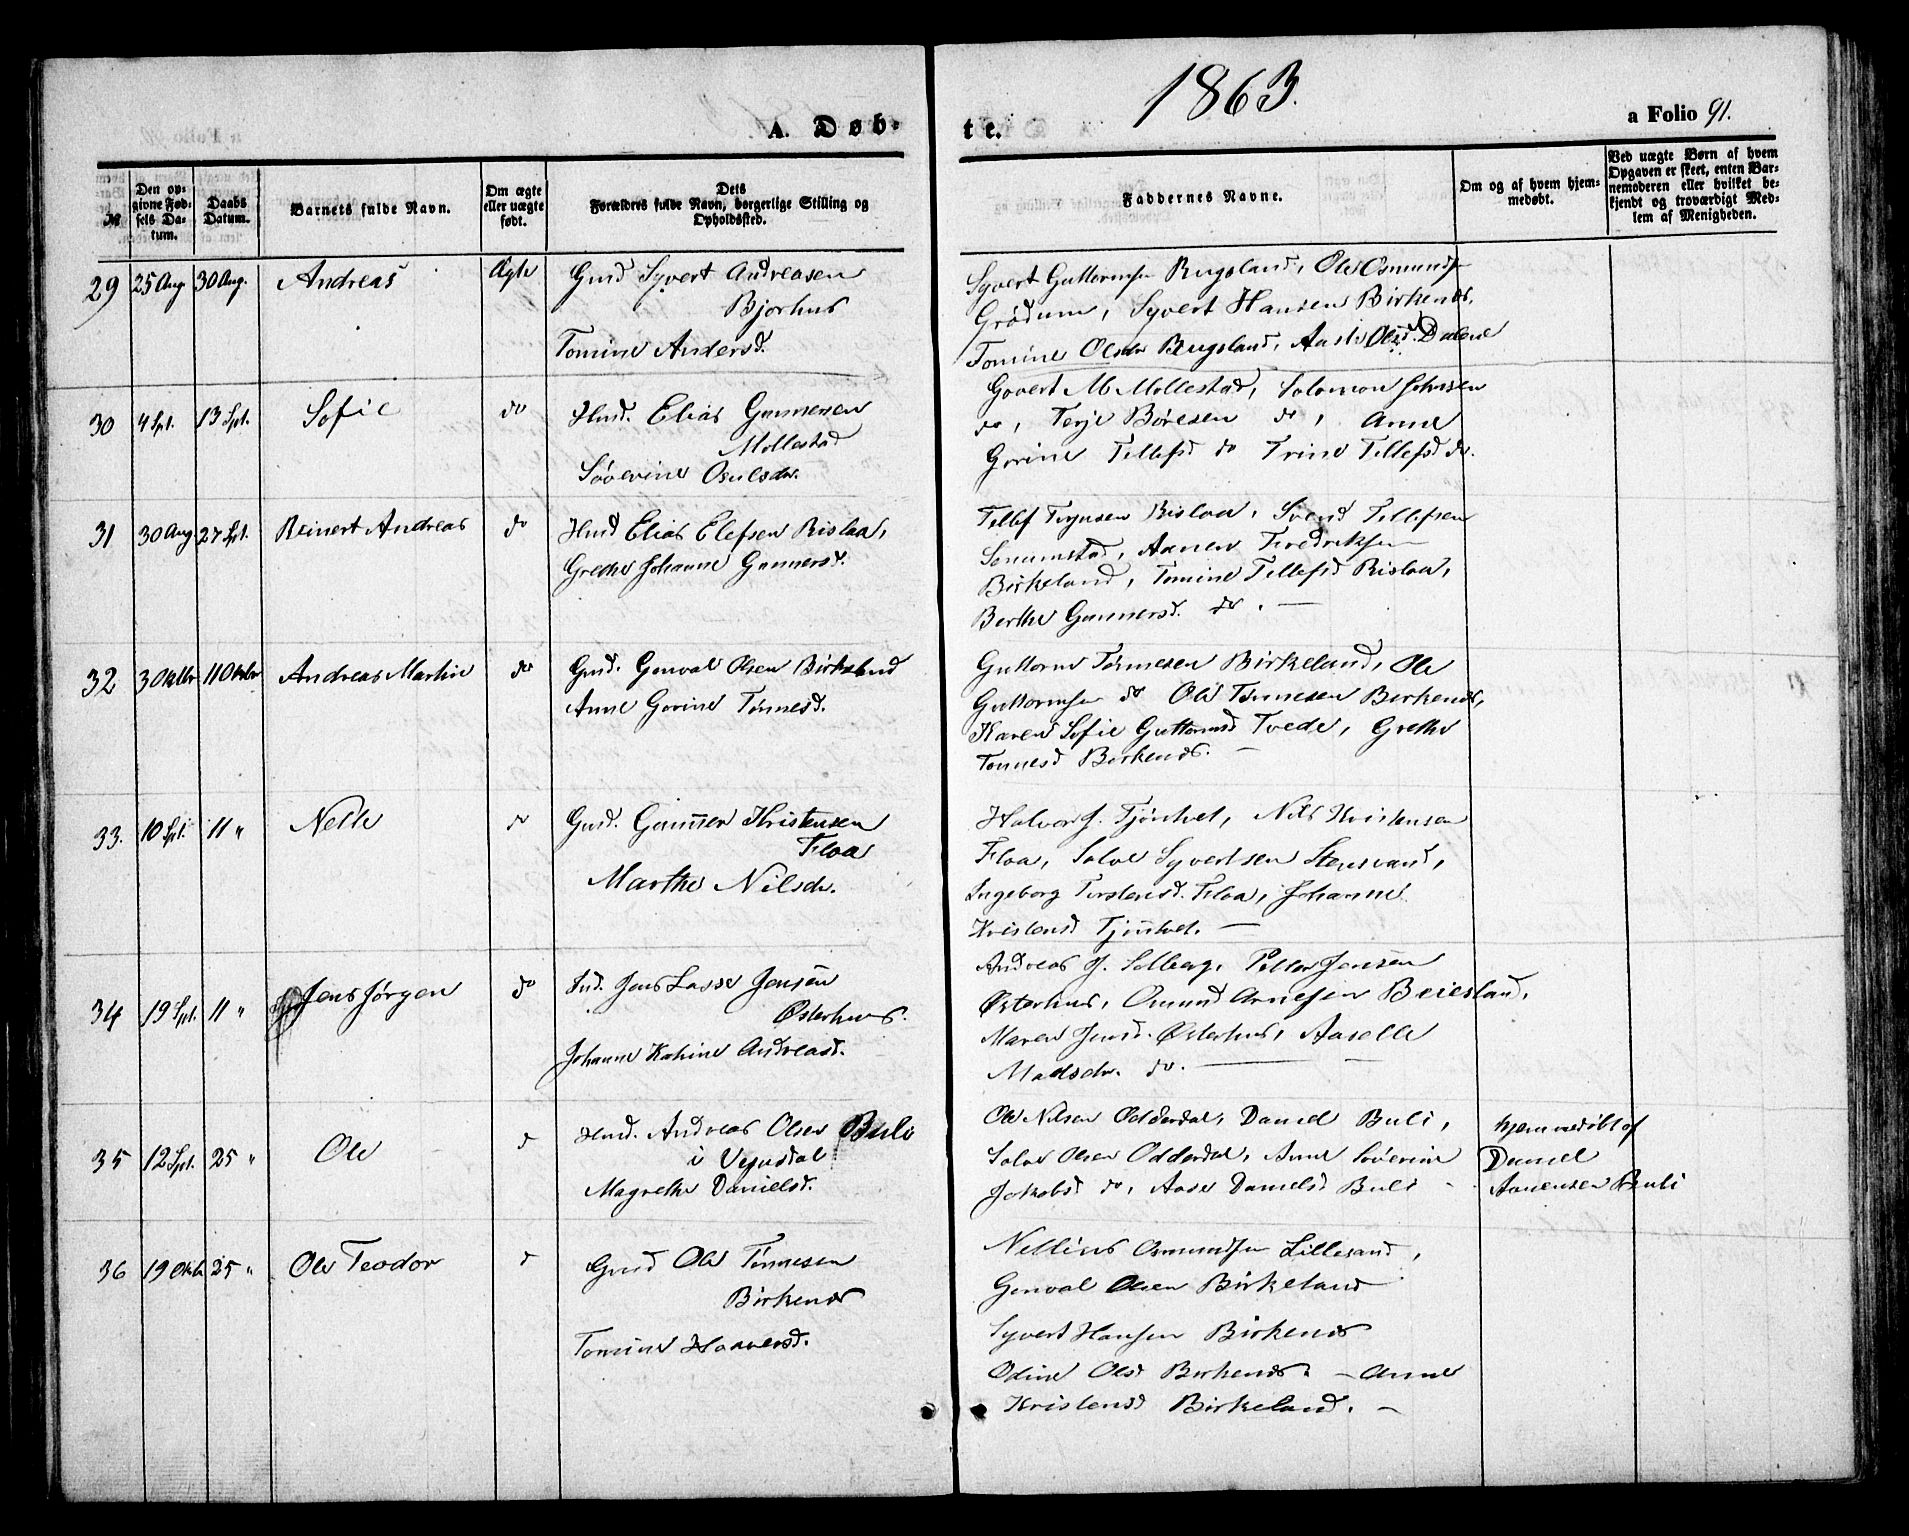 1863.
A. Døb-
te.
a Folio 91.
№
Den op-
givne Fød-
sels Da-
tum.
Daabs
Datum.
Barnets fulde Navn.
Om ægte
eller uægte
født.
Dets
Forældres fulde Navn, borgerlige Stilling og
Opholdssted.
Faddernes Navne.
Om og af hvem hjem-
medøbt.
Ved uægte Børn af hvem
Opgaven er skeet, enten Bar-
nemoderen eller hvilket be-
kjendt og troværdigt Med-
lem af Menigheden.
29 25 Aug 30 Aug. Andreas Ægte
Gmd Syvert Andreasen
Bjorhus
Tomine Andersd.
Syvert Guttormsen Rugsland, Ole Osmunds
Grødum, Syvert Hansen Birkenes,
Tomine Olsdr Rugsland, Aaste Olsd. Dalene
30 4 Spt. 13 Spt. Sofie do
Hmd. Elias Gunnersen
Mollestad
Søverine Osulsdr.
Govert M Mollestad, Solomon Johnsen
do, Terje Børesen do, Anne
Gorine Tellefsd do Trine Tellefsd do.
31 30 Aug 27 Spt. Reinert Andreas do
Hmd Elias Elefsen Rislaa,
Grethe Johanne Gunnersd.
Tellef Terjesen Rislaa, Svend Tellefsen
Senumstad, Aanen Fredriksen
Birkeland, Tomine Tellefsd Rislaa,
Berthe Gunnersd. do. —
32 3 Oktbr 11 Oktbr Andreas Martin do
Gmd. Gunval Olsen Birkeland
Anne Gorine Tønnesd.
Guttorm Tønnesen Birkeland, Ole
Guttormsen do Ole Tønnesen Birkenes,
Karen Sofie Guttormsd Tvede, Grethe
Tønnesd Birkenes. —
33. 10 Spt. 11 " Nelle do
Gmd. Gunner Kristensen
Floa
Marthe Nilsdr.
Halvor J. Tjønhvet, Nils Kristensen
Floa, Salve Syvertsen Stensvand,
Ingeborg Torstensd. Floa, Johanne
Kristensd Tjønhvet. —
34 19 Spt. 11 " Jens Jørgen do
Ind. Jens Lasse Jensen
Østerhus.
Johanne Katrine Andreasd.
Andreas J. Solberg, Petter Jensen
Østerhus, Osmund Arnesen Beiesland,
Maren Jensd. Østerhus, Aaselle
Madsdr. do. —
35 12 Spt. 25 " Ole d
Hmd. Andreas Olsen Buli
i Vegusdal
Magrethe Danielsd.
Ole Nilsen Odderdal, Daniel Buli,
Salve Olsen Odderdal, Anne Søverine
Jakobsd do, Aase Danielsd Buli -
hjemmedøbt af
Daniel
Aanensen Buli
36 19 Oktb 25 " Ole Teodor d
Gmd Ole Tønnesen
Birkenes
Tomine Haaversd.
Nellius Osmundsen Lillesand,
Gunval Olsen Birkeland
Syvert Hansen Birkenes
Odine Olsd Birkenes. — Anne
Kristensd Birkeland. —